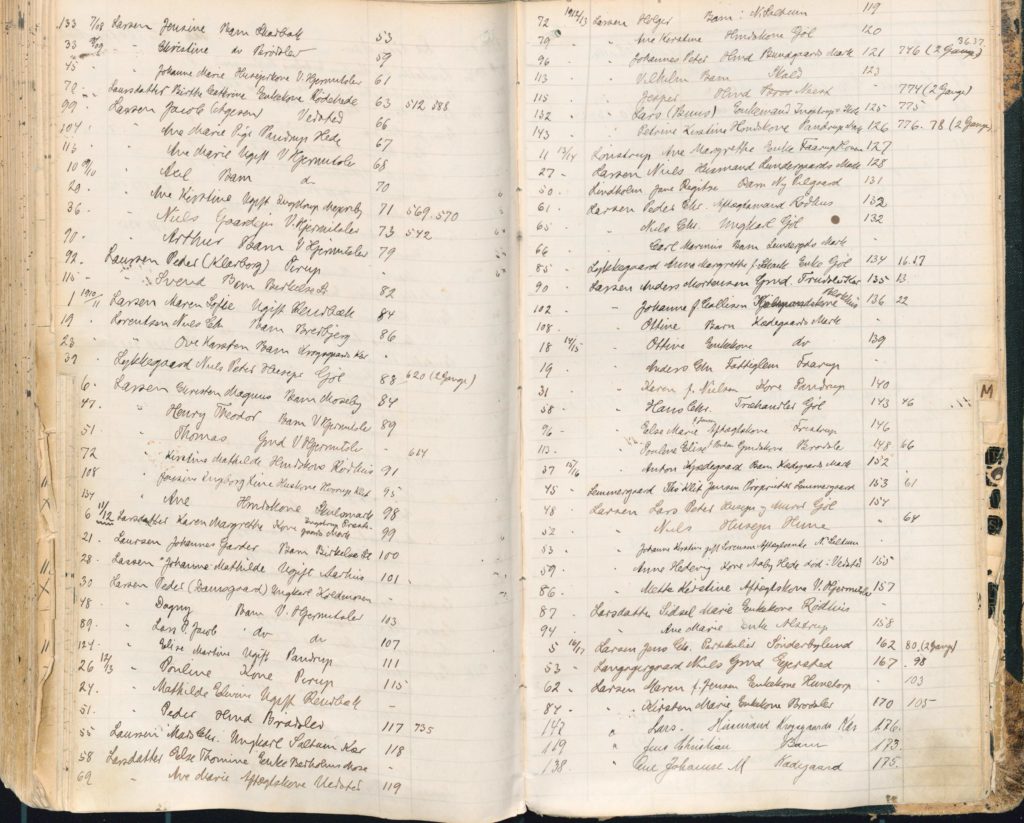 133 7/08 Larsen Jensine Barn Kaarbæk 53
33 8/09 " Christine dv Brødslev 59
45 " Johanne Marie Husejerkone V. Hjermitslev 61
72 - Laursdatter Birthe Cathrine Enkekone Rødelede 63 512. 588
99 - Larsen Jacob (Aagesen) Vedsted 66
104 - " Ane Marie Pige Pandrup Hede 67
113 - " Ane Marie Ugift V Hjermitslev 68
10 9/10 " Axel Barn dv 70
20 - " Ane Kirstine Ugift Ingstrup Mejeriby 71 569. 570
36 - " Niels Gaardejer V. Hjermitslev 73 542
90 - " Arthur Barn V Hjermitslev 79
92 - Laursen Peder (Klarborg) Pirup -
115 - " Svend Barn Birkelse St. 82
1 1910/11 Larsen Maren Sofie Ugift Rendbæk 84
19 - Lorentsen Niels Chr. Barn Bredbjerg 86
23 - " Ove Karsten Barn Krogsgaards Kær -
39 - Lykkegaard Niels Peter Husejer Gjøl 88 620 (2 Gange)
6 - Larsen Christen Magnus Barn Moseby 84
47 - " Henry Theodor Barn V Hjermitslev 89
51 " Thomas Gmd V Hjermitslev - 614
72 " Kirstine Mathilde Hmdskone Rødhus 91
108 " Jensine Ingeborg Kone 95
154 " Ane Hmdskone 98
6 11/12 Larsdatter Karen Margrethe Kone 99
21 - Laursen Johannes Garder Barn Birkelse St 100
28 - Larsen Johanne Mathilde Ugift Aarhus 101
30 Larsen Peder (Damsgaard) Ungkarl -
48 - " Dagny Barn V. Hjermitslev 103
89 - " Lars P. Jacob dv dv 107
124 - " Else Martine Ugift Pandrup 111
26 12/13 " Pouline Kone Pirup 115
24 - " Mathilde Elvine Ugift Rendbæk -
51 - " Peder Hmd Brødslev 117 735
55 Laursen Mads Chr. Ungkarl Saltum Kær 118
58 Larsdatter Else Thomine Enke -
69 " Ane Marie Aftægtskone Vedsted 119
72 1912/13 Larsen Holger Barn N. Saltum 119
79 - " Ane Kirstine Hmdskone Gjøl 120
96 - " Johannes Peter Hmd Bundgaards Mark 121 746 (2 Gange) 36.37
113 - " Vilhelm Barn Kald 123
115 " Jesper Hmd - 774 (2 Gange)
132 - " Lars (Buus) Enkemand Ingstrup 125 775
143 - " Petrine Kirstine Hmdskone Pandrup 126 776. 78 (2 Gange)
11 13/14 Ane Margrethe Enke 127
27 - Larsen Niels Husmand Lundergaards Mark 128
50 - Lindholm Jane Regitse Barn Ny 131
61 - Larsen Peder Chr. Aftægtsmand Rødhus 132
65 " Niels Chr. Ungkarl Gjøl 132
66 " Carl Marinus Barn Mark -
85 - Lykkegaard Anne Margrethe Enke Gjøl 134 16.17
90 - Larsen Anders Mortensen Gmd. Kær 135 13
102 " Johanne f. Blokhus 136 22
108 - " Ottine Barn Kædegaards Mark -
18 14/15 " Ottine Enkekone dv 139
19 - " Anders Chr. Fattiglem Faarup -
31 " Karen f. Nielsen Kone Pandrup 140
58 - " Hans Chr. Træhandler Gjøl 143 46
96 - " Else Marie Aftægtskone 146
113 - " Pouline Elise Gmdskone Brødslev 148 66
37 15/16 " Anton Kjædegaard Barn Kædegaards Mark 152
45 - Lemmergaard Ths Klit Jensen Proprietær Lemmergaard 153 61
48 - Larsen Lars Peter Husejer og Murer Gjøl 154
52 " Niels Husejer Hune " 64
53 - " Johanne Kirstine gift Sørensen Aftægtsenke N. Saltum -
59 - " Anne Hedevig Kone Aaby Hede død i Vedsted 155
86 - " Mette Kirstine Aftægtskone V. Hjermitslev 157
87 Larsdatter Sidsel Marie Enkekone Rødhus -
94 " Ane Marie Enke Alstrup 158
5 16/17 Larsen Jens Chr. Partikulier Sønderbylund 162 80. (2 Gange)
53 - Langagergaard Niels Gmd Ejersted 167 - 98
62 - Larsen Maren f. Jensen Enkekone Hunetorp - 103
84 - " Kirsten Marie Enkekone Brødslev 170 105
147 " Lars. Husmand Krogsgaards Kær 176.
119 " Jens Christian Barn 173.
138 " Ane Johanne M Kædegaard 175.
M